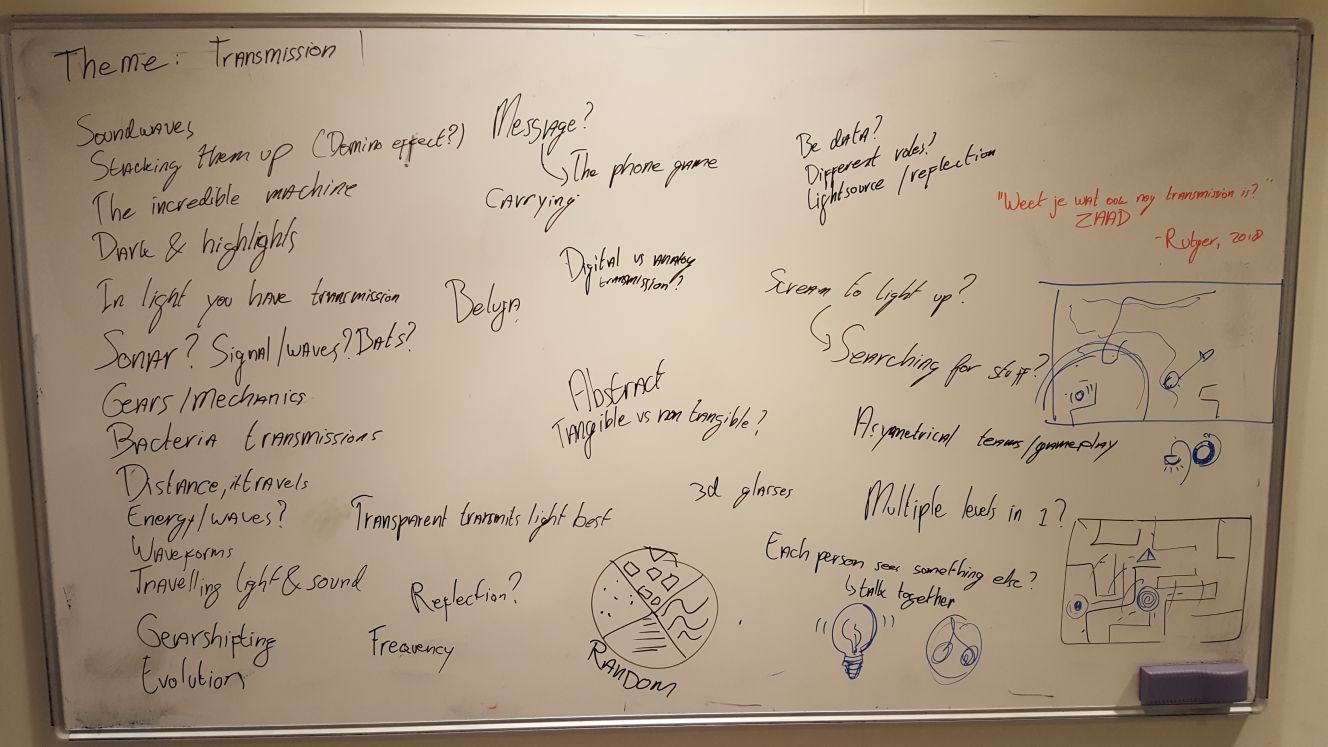 Theme: Transmission
Soundwaves
Stacking them up (Domino effect?)
The incredible machine
Dark & highlights
In light you have transmission
Sonar? Signal/waves? Bats?
Gears/mechanics
Bacteria transmissions
Distance, it travels
Energy/waves?
Waveforms
Travelling light & sound
Gearshifting
Evolution
Message?
The phone game
Carrying
Digital vs analog
transmission?
Beluga
Abstract
Tangible vs non tangible?
3d glasses
Transparent transmits light best
Reflection?
Frequency
RANDOM
Be data?
Different roles?
Lightsource / reflection
"Weet je wat ook nog transmission is?"
ZAAD
-Rutger, 2018
Scream to light up?
Searching for stuff?
Asymetrical teams/gameplay
Multiple levels in 1?
Each person sees something else?
talk together